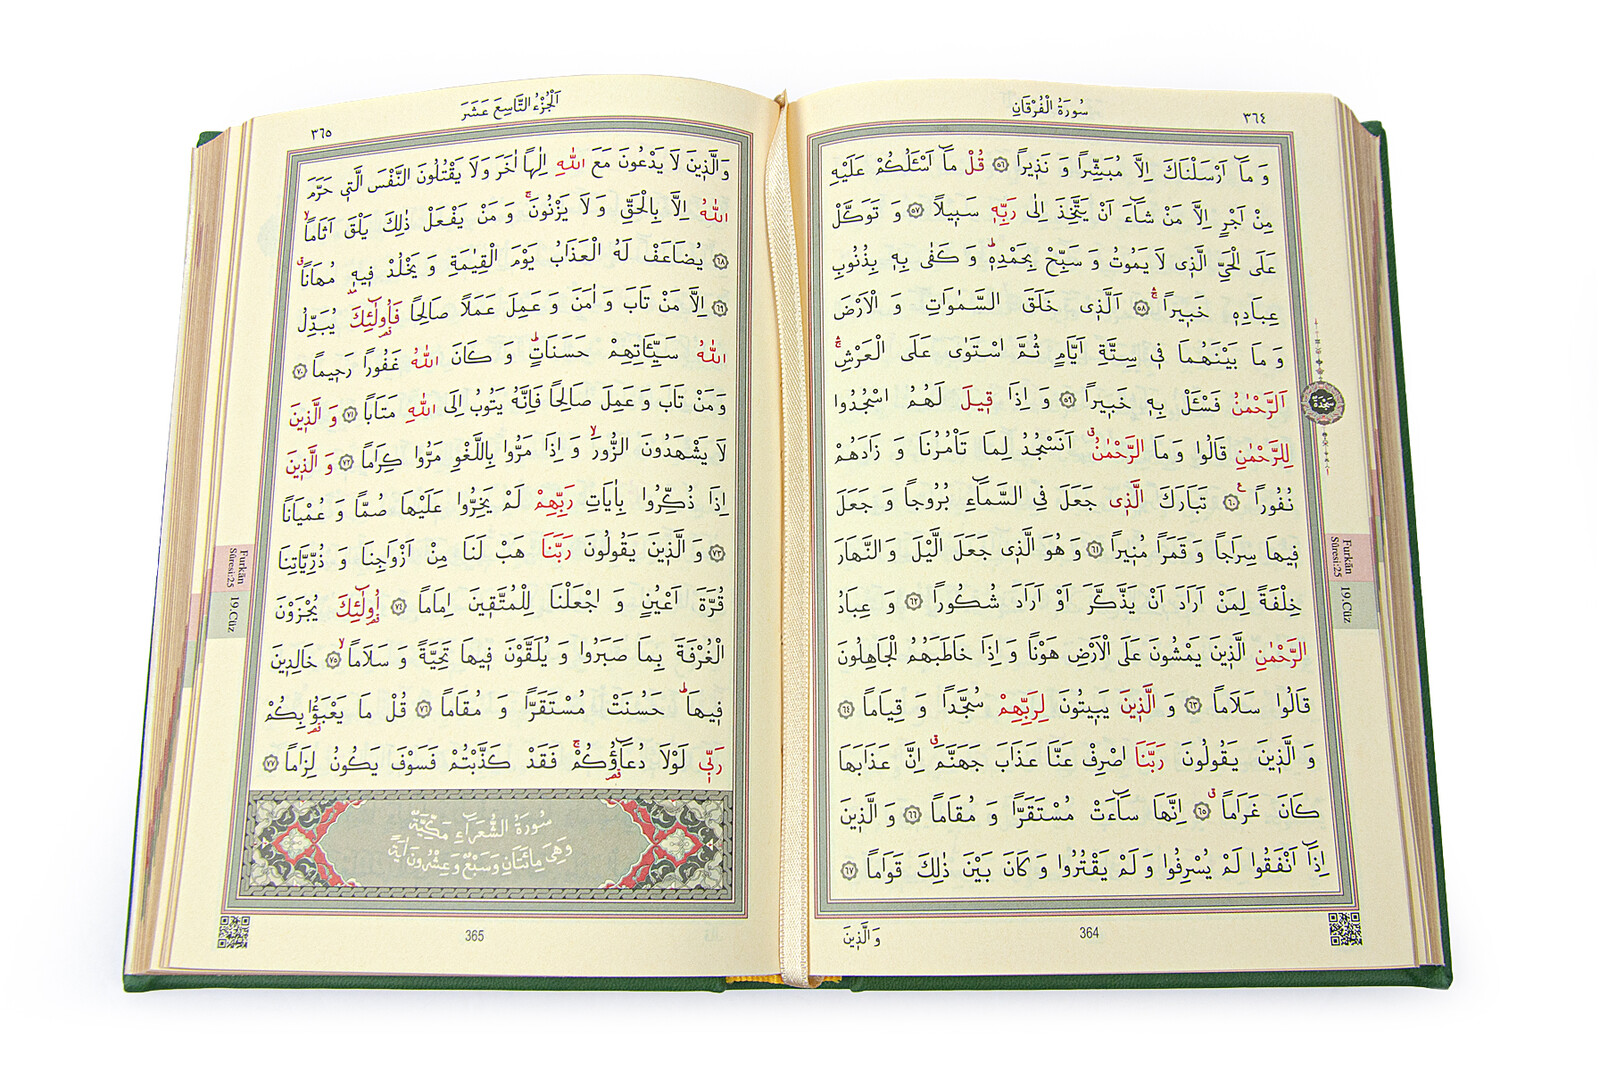 سُورَةُ الْفُرْقَانِ
٣٦٤
وَ مَٓا اَرْسَلْنَاكَ اِلَّا مُبَشِّرًا وَ نَذ۪يرًا ﴿٥٦﴾ قُلْ مَٓا اَسْـَٔلُكُمْ عَلَيْهِ
مِنْ اَجْرٍ اِلَّا مَنْ شَٓاءَ اَنْ يَتَّخِذَ اِلٰى رَبِّه۪ سَب۪يلًا ﴿٥٧﴾ وَ تَوَكَّلْ
عَلَى الْحَيِّ الَّذ۪ى لَا يَمُوتُ وَ سَبِّحْ بِحَمْدِه۪ۜ وَ كَفٰى بِه۪ بِذُنُوبِ
عِبَادِه۪ خَب۪يرًاۚ ﴿٥٨﴾ اَلَّذ۪ى خَلَقَ السَّمٰوَاتِ وَ الْاَرْضَ
وَ مَا بَيْنَهُمَا ف۪ى سِتَّةِ اَيَّامٍ ثُمَّ اسْتَوٰى عَلَى الْعَرْشِۚ
اَلرَّحْمٰنُ فَسْـَٔلْ بِه۪ خَب۪يرًا ﴿٥٩﴾ وَ اِذَا ق۪يلَ لَهُمُ اسْجُدُوا
لِلرَّحْمٰنِ قَالُوا وَ مَا الرَّحْمٰنُۗ اَنَسْجُدُ لِمَا تَأْمُرُنَا وَ زَادَهُمْ
نُفُورًا ﴿٦٠﴾ تَبَارَكَ الَّذ۪ى جَعَلَ فِى السَّمَٓاءِ بُرُوجًا وَ جَعَلَ
ف۪يهَا سِرَاجًا وَ قَمَرًا مُن۪يرًا ﴿٦١﴾ وَ هُوَ الَّذ۪ى جَعَلَ الَّيْلَ وَ النَّهَارَ
خِلْفَةً لِمَنْ اَرَادَ اَنْ يَذَّكَّرَ اَوْ اَرَادَ شُكُورًا ﴿٦٢﴾ وَ عِبَادُ
الرَّحْمٰنِ الَّذ۪ينَ يَمْشُونَ عَلَى الْاَرْضِ هَوْنًا وَ اِذَا خَاطَبَهُمُ الْجَاهِلُونَ
قَالُوا سَلَامًا ﴿٦٣﴾ وَ الَّذ۪ينَ يَب۪يتُونَ لِرَبِّهِمْ سُجَّدًا وَ قِيَامًا ﴿٦٤﴾
وَ الَّذ۪ينَ يَقُولُونَ رَبَّنَا اصْرِفْ عَنَّا عَذَابَ جَهَنَّمَۗ اِنَّ عَذَابَهَا
كَانَ غَرَامًاۗ ﴿٦٥﴾ اِنَّهَا سَٓاءَتْ مُسْتَقَرًّا وَ مُقَامًا ﴿٦٦﴾ وَ الَّذ۪ينَ
اِذَٓا اَنْفَقُوا لَمْ يُسْرِفُوا وَ لَمْ يَقْتُرُوا وَ كَانَ بَيْنَ ذٰلِكَ قَوَامًا ﴿٦٧﴾
وَ الَّذ۪ينَ
364
سَجْدَة
Furkân Sûresi:25
19.Cüz
اَلْجُزْءُ التَّاسِعَ عَشَرَ
٣٦٥
وَ الَّذ۪ينَ لَا يَدْعُونَ مَعَ اللّٰهِ اِلٰهًا اٰخَرَ وَ لَا يَقْتُلُونَ النَّفْسَ الَّت۪ى حَرَّمَ
اللّٰهُ اِلَّا بِالْحَقِّ وَ لَا يَزْنُونَۚ وَ مَنْ يَفْعَلْ ذٰلِكَ يَلْقَ اَثَامًاۙ
﴿٦٨﴾ يُضَاعَفْ لَهُ الْعَذَابُ يَوْمَ الْقِيٰمَةِ وَ يَخْلُدْ ف۪يه۪ مُهَانًاۗ
﴿٦٩﴾ اِلَّا مَنْ تَابَ وَ اٰمَنَ وَ عَمِلَ عَمَلًا صَالِحًا فَاُو۬لٰٓئِكَ يُبَدِّلُ
اللّٰهُ سَيِّـَٔاتِهِمْ حَسَنَاتٍۜ وَ كَانَ اللّٰهُ غَفُورًا رَح۪يمًا ﴿٧٠﴾
وَ مَنْ تَابَ وَ عَمِلَ صَالِحًا فَاِنَّهُ يَتُوبُ اِلَى اللّٰهِ مَتَابًا ﴿٧١﴾ وَ الَّذ۪ينَ
لَا يَشْهَدُونَ الزُّورَۙ وَ اِذَا مَرُّوا بِاللَّغْوِ مَرُّوا كِرَامًا ﴿٧٢﴾ وَ الَّذ۪ينَ
اِذَا ذُكِّرُوا بِاٰيَاتِ رَبِّهِمْ لَمْ يَخِرُّوا عَلَيْهَا صُمًّا وَ عُمْيَانًا
﴿٧٣﴾ وَ الَّذ۪ينَ يَقُولُونَ رَبَّنَا هَبْ لَنَا مِنْ اَزْوَاجِنَا وَ ذُرِّيَّاتِنَا
قُرَّةَ اَعْيُنٍ وَ اجْعَلْنَا لِلْمُتَّق۪ينَ اِمَامًا ﴿٧٤﴾ اُو۬لٰٓئِكَ يُجْزَوْنَ
الْغُرْفَةَ بِمَا صَبَرُوا وَ يُلَقَّوْنَ ف۪يهَا تَحِيَّةً وَ سَلَامًاۙ ﴿٧٥﴾ خَالِد۪ينَ
ف۪يهَاۜ حَسُنَتْ مُسْتَقَرًّا وَ مُقَامًا ﴿٧٦﴾ قُلْ مَا يَعْبَؤُ۬ا بِكُمْ
رَبّ۪ى لَوْلَا دُعَٓاؤُ۬كُمْۚ فَقَدْ كَذَّبْتُمْ فَسَوْفَ يَكُونُ لِزَامًا ﴿٧٧﴾
سُورَةُ الشُّعَرَاءِ مَكِّيَّةٌ
وَهِىَ مِائَتَانِ وَسَبْعٌ وَعِشْرُونَ اٰيَةً
365
Furkân Sûresi:25
19.Cüz